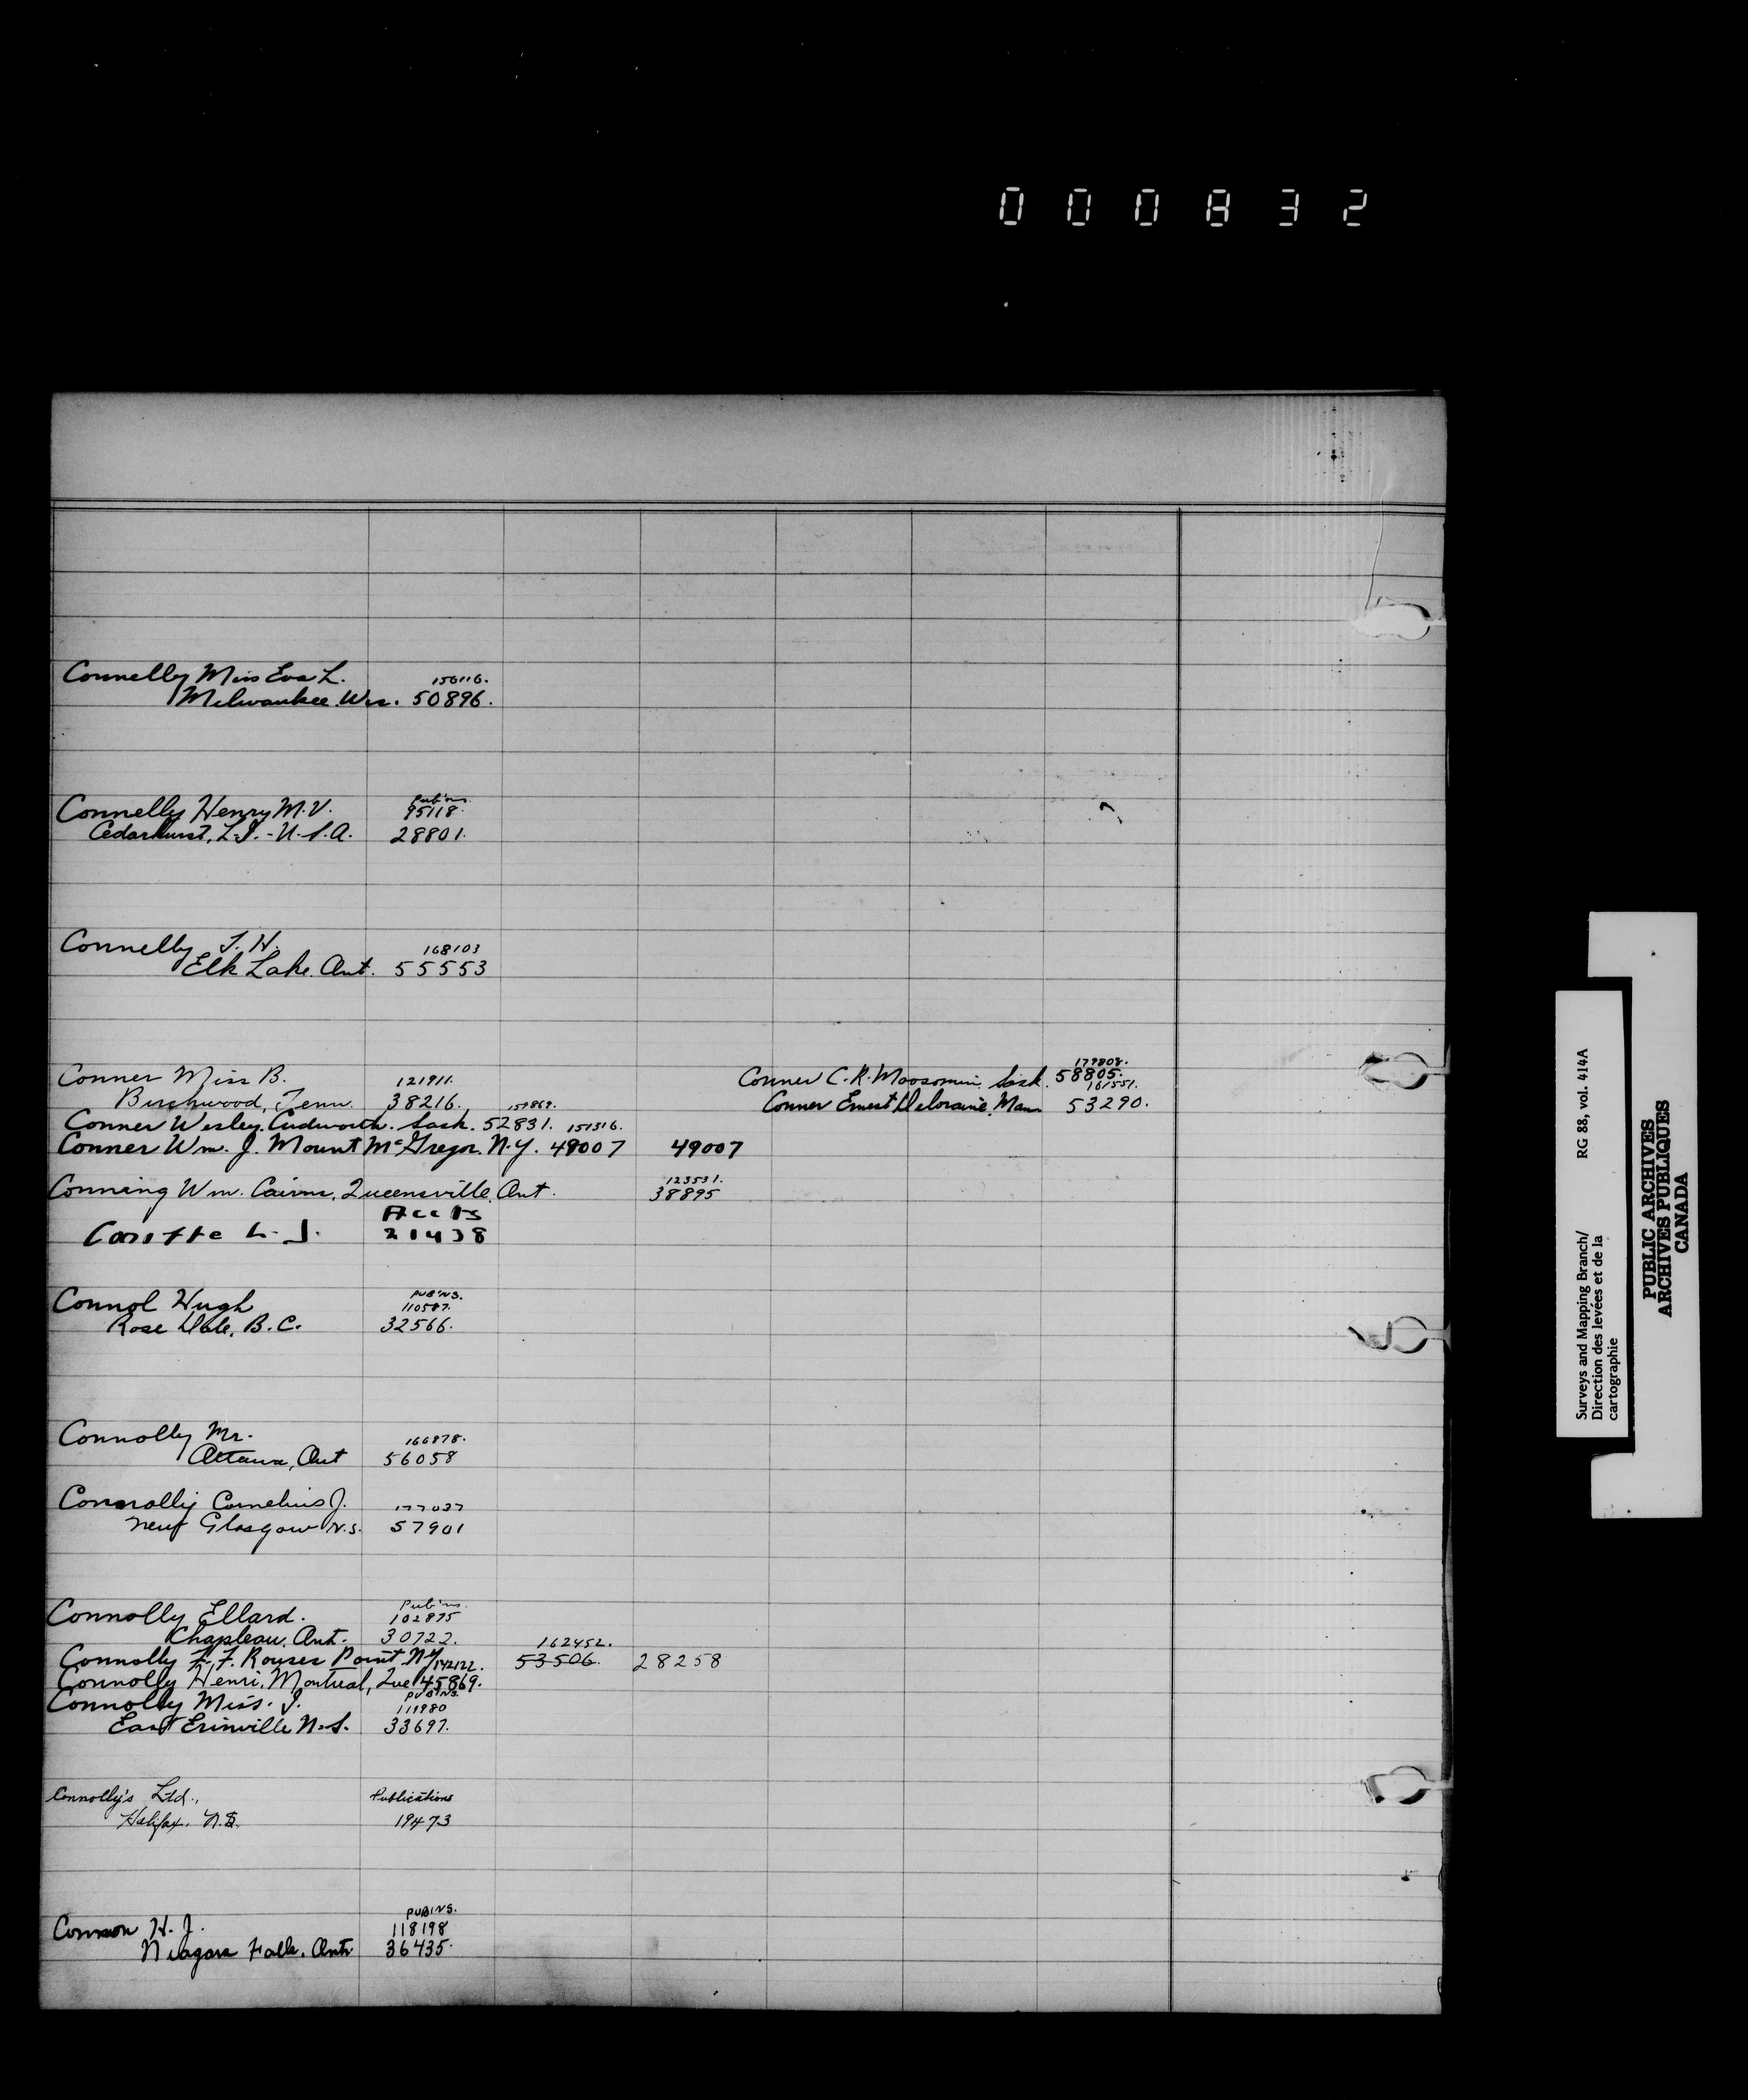 000832
Connelly Miss Eva L. 156116.
Milwaukee Wis. 50896.
Connelly Henry M.V. Pub'ns. 95118.
Cedarhurst, L.I. - U.S.A. 28801.
Connelly T. H. 168103
Elk Lake. Ont. 55553
Conner Miss B. 121911.
Birchwood, Tenn. 38216.
Conner Wesley. Cudworth. Sask. 52831. 159869.
Conner Wm. J. Mount McGregor. N.Y. 49007 151316. 49007
Conner C. R. Moosomin, Sask. 58805. 179808.
Conner Ernest Deloraine, Man. 53290. 161551.
Conning Wm. Cairns, Queensville, Ont. 123531. 38895
L. J. Accts 21438
Connol Hugh PUB'NS. 110587.
Rose Dale, B.C. 32566.
Connolly Mr. 166878.
Ottawa, Ont 56058
Connolly Cornelius J. 177037
New Glasgow N.S. 57901
Connolly Ellard. Pub'ns. 102875
Chapleau, Ont. 30722.
Connolly F. F. Rouses Point N.Y. 162452. 53506. 28258
Connolly Henri, Montreal, Que 142122. 45869.
Connolly Miss. J. PUB'NS. 111980
East Erinville N.S. 33697.
Connolly's Ltd., Publications
Halifax, N.S. 19473
Connon H. J. PUB'NS. 118198
Niagara Falls, Ont. 36435.
Surveys and Mapping Branch/ RG 88, vol. 414A
Direction des levées et de la
cartographie
PUBLIC ARCHIVES
ARCHIVES PUBLIQUES
CANADA